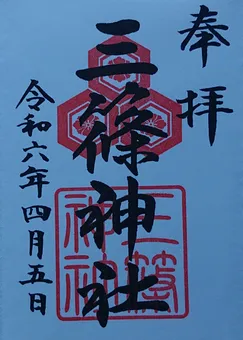 奉拝
三篠神社
令和六年四月五日
三篠
神社